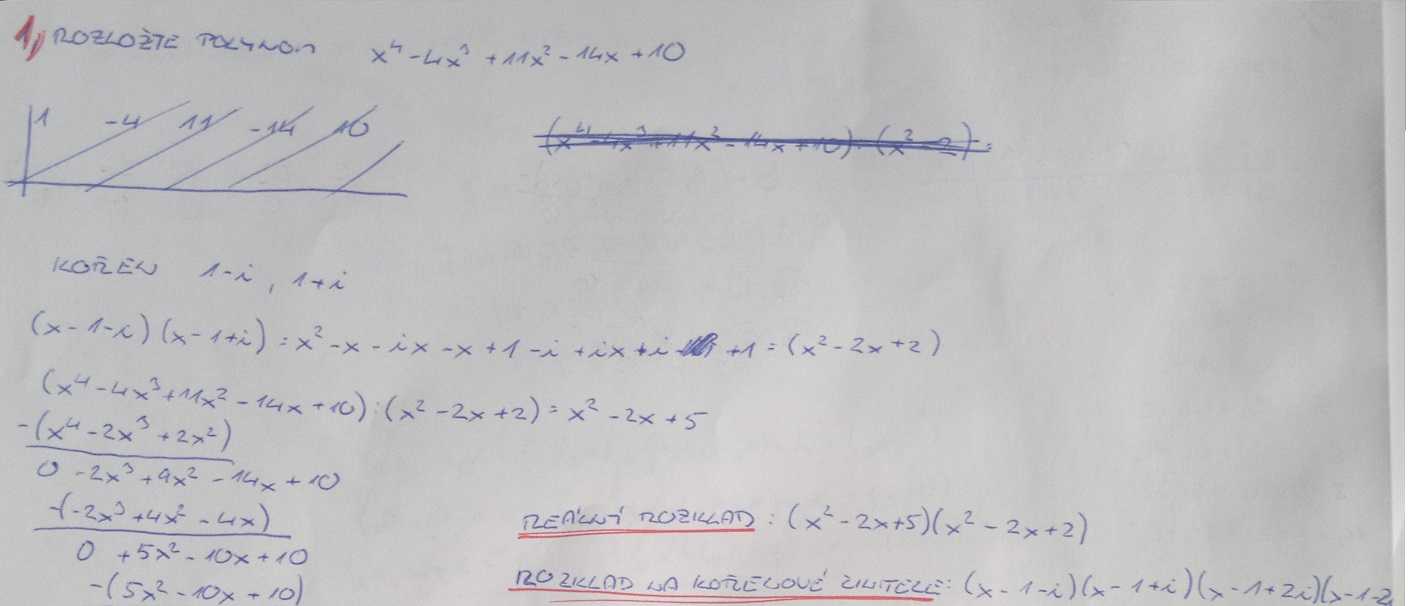 1, ROZLOŽTE POLYNOM x⁴ - 4x³ + 11x² - 14x + 10
1 -4 11 -14 10
(x⁴ - 4x³ + 11x² - 14x + 10) : (x² - 2) =
KOŘEN 1-i, 1+i
(x-1-i)(x-1+i) = x² - x - ix - x + 1 - i + ix + i + 1 = (x² - 2x + 2)
(x⁴ - 4x³ + 11x² - 14x + 10) : (x² - 2x + 2) = x² - 2x + 5
-(x⁴ - 2x³ + 2x²)
0 - 2x³ + 9x² - 14x + 10
-(-2x³ + 4x² - 4x)
0 + 5x² - 10x + 10
-(5x² - 10x + 10)
REÁLNÝ ROZKLAD: (x² - 2x + 5)(x² - 2x + 2)
ROZKLAD NA KOŘENOVÉ ČINITELE: (x-1-i)(x-1+i)(x-1+2i)(x-1-2